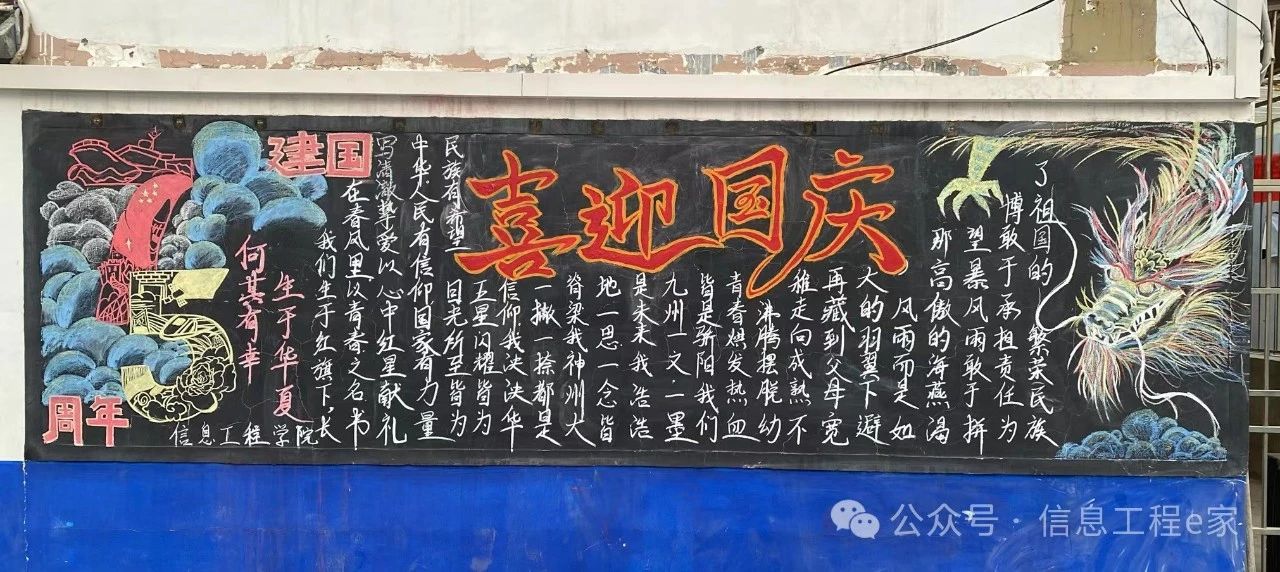 建国
周年
何其有幸
生于华夏
信息工程学院
喜迎国庆
我们生于红旗下,长
在春风里以青春之名书
写清澈挚爱以心中红星献礼
中华人民有信仰国家有力量
民族有希望目光所至皆为
五星闪耀皆为
信仰我决决华
一撇一捺都是
脊梁我神州大
地一思一念皆
是未来我浩浩
九州一文一墨
皆是骄阳我们
青春焕发热血
沸腾摆脱幼
稚走向成熟不
再藏到父母宽
大的羽翼下避
风雨而是如
那高傲的海燕渴
望暴风雨敢于拼
博敢于承担责任为
了祖国的 繁荣民族
公众号·信息工程e家